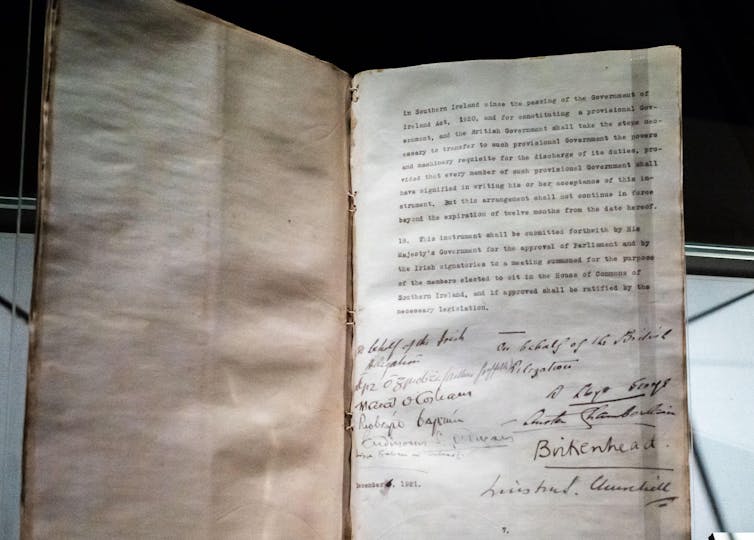 in Southern Ireland since the passing of the Government of
Ireland Act, 1920, and for constituting a provisional Gov-
ernment, and the British Government shall take the steps nec-
essary to transfer to such provisional Government the powers
and machinery requisite for the discharge of its duties, pro-
vided that every member of such provisional Government shall
have signified in writing his or her acceptance of this in-
strument. But this arrangement shall not continue in force
beyond the expiration of twelve months from the date hereof.
18. This instrument shall be submitted forthwith by His
Majesty's Government for the approval of Parliament and by
the Irish signatories to a meeting summoned for the purpose
of the members elected to sit in the House of Commons of
Southern Ireland, and if approved shall be ratified by the
necessary legislation.
behalf of the Irish
delegation
(Arthur Griffith)
December 6, 1921.
On behalf of the British
Delegation
D Lloyd George
Austen Chamberlain
Birkenhead.
Winston S. Churchill
7.